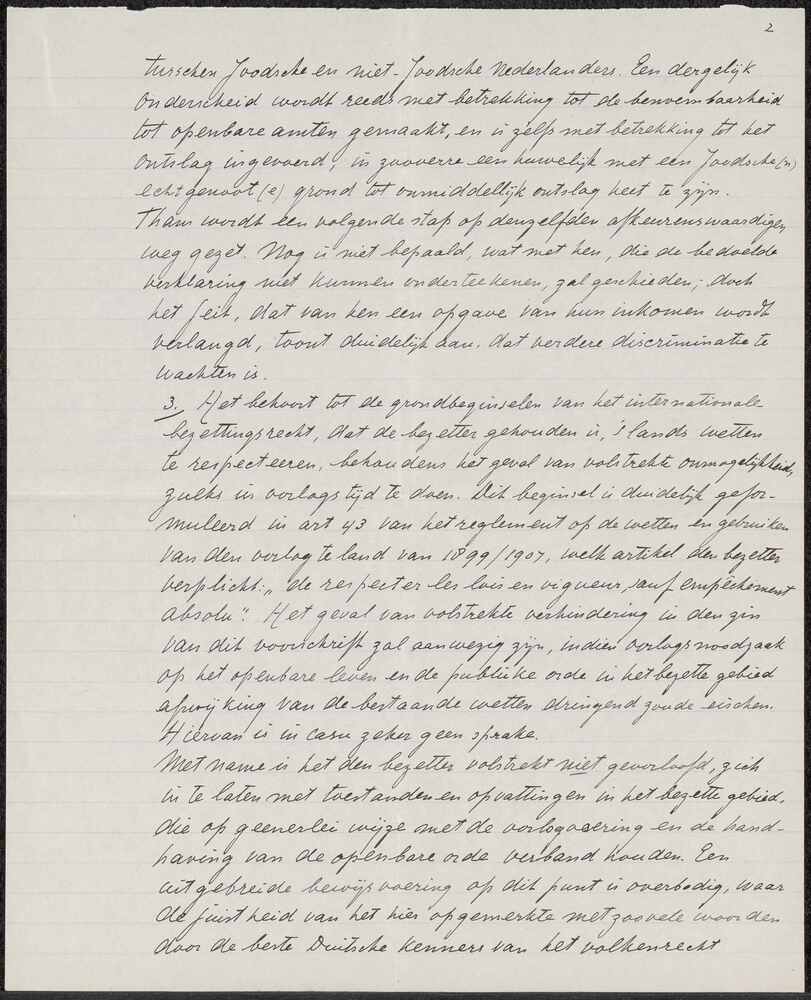 2
tusschen Joodsche en niet-Joodsche Nederlanders. Een dergelijk
onderscheid wordt reeds met betrekking tot de benoembaarheid
tot openbare ambten gemaakt, en is zelfs met betrekking tot het
ontslag ingevoerd, in zooverre een huwelijk met een Joodsche(n)
echtgenoot(e) grond tot onmiddellijk ontslag heet te zijn.
Thans wordt een volgende stap op denzelfden afkeurenswaardigen
weg gezet. Nog is niet bepaald, wat met hen, die de bedoelde
verklaring niet kunnen onderteekenen, zal geschieden; doch
het feit, dat van hen een opgave van hun inkomen wordt
verlangd, toont duidelijk aan, dat verdere discriminatie te
wachten is.
3. Het behoort tot de grondbeginselen van het internationale
bezettingsrecht, dat de bezetter gehouden is, 's lands wetten
te respecteeren, behoudens het geval van volstrekte onmogelijkheid,
zulks in oorlogstijd te doen. Dit beginsel is duidelijk gefor-
muleerd in art 43 van het reglement op de wetten en gebruiken
van den oorlog te land van 1899/1907, welk artikel den bezetter
verplicht: „de respecter les lois en vigueur, sauf empêchement
absolu". Het geval van volstrekte verhindering in den zin
van dit voorschrift zal aanwezig zijn, indien oorlogsnoodzaak
op het openbare leven en de publieke orde in het bezette gebied
afwijking van de bestaande wetten dringend zoude eischen.
Hiervan is in casu zeker geen sprake.
Met name is het den bezetter volstrekt niet geoorloofd, zich
in te laten met toestanden en opvattingen in het bezette gebied,
die op geenerlei wijze met de oorlogvoering en de hand-
having van de openbare orde verband houden. Een
uitgebreide bewijsvoering op dit punt is overbodig, waar
de juistheid van het hier opgemerkte met zoovele woorden
door de beste Duitsche kenners van het volkenrecht